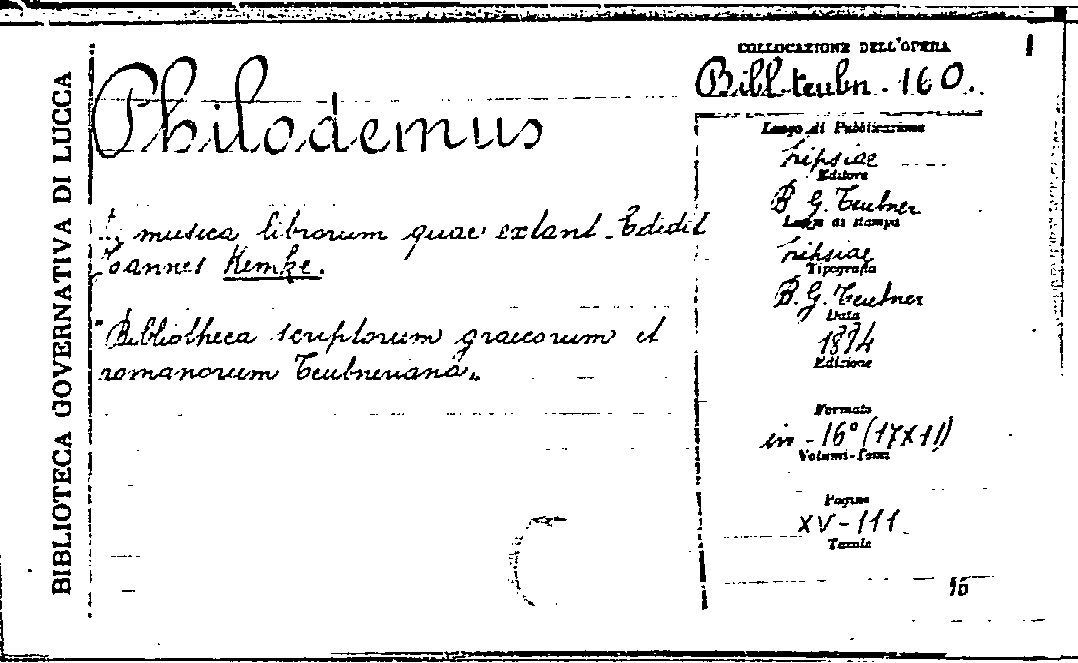 BIBLIOTECA GOVERNATIVA DI LUCCA
Philodemus
musica librorum quae extant. Edidit
Ioannes Kemke.
"Bibliotheca scriptorum graecorum et
romanorum Teubneriana„
COLLOCAZIONE DELL'OPERA
Bibl. teubn. 160.
Luogo di Pubblicazione
Lipsiae
Editore
B. G. Teubner
Luogo di stampa
Lipsiae
Tipografia
B. G. Teubner
Data
Edizione
Formato
in-16° (17X11)
Volumi-Tomi
Pagine
XV-111
Tavole